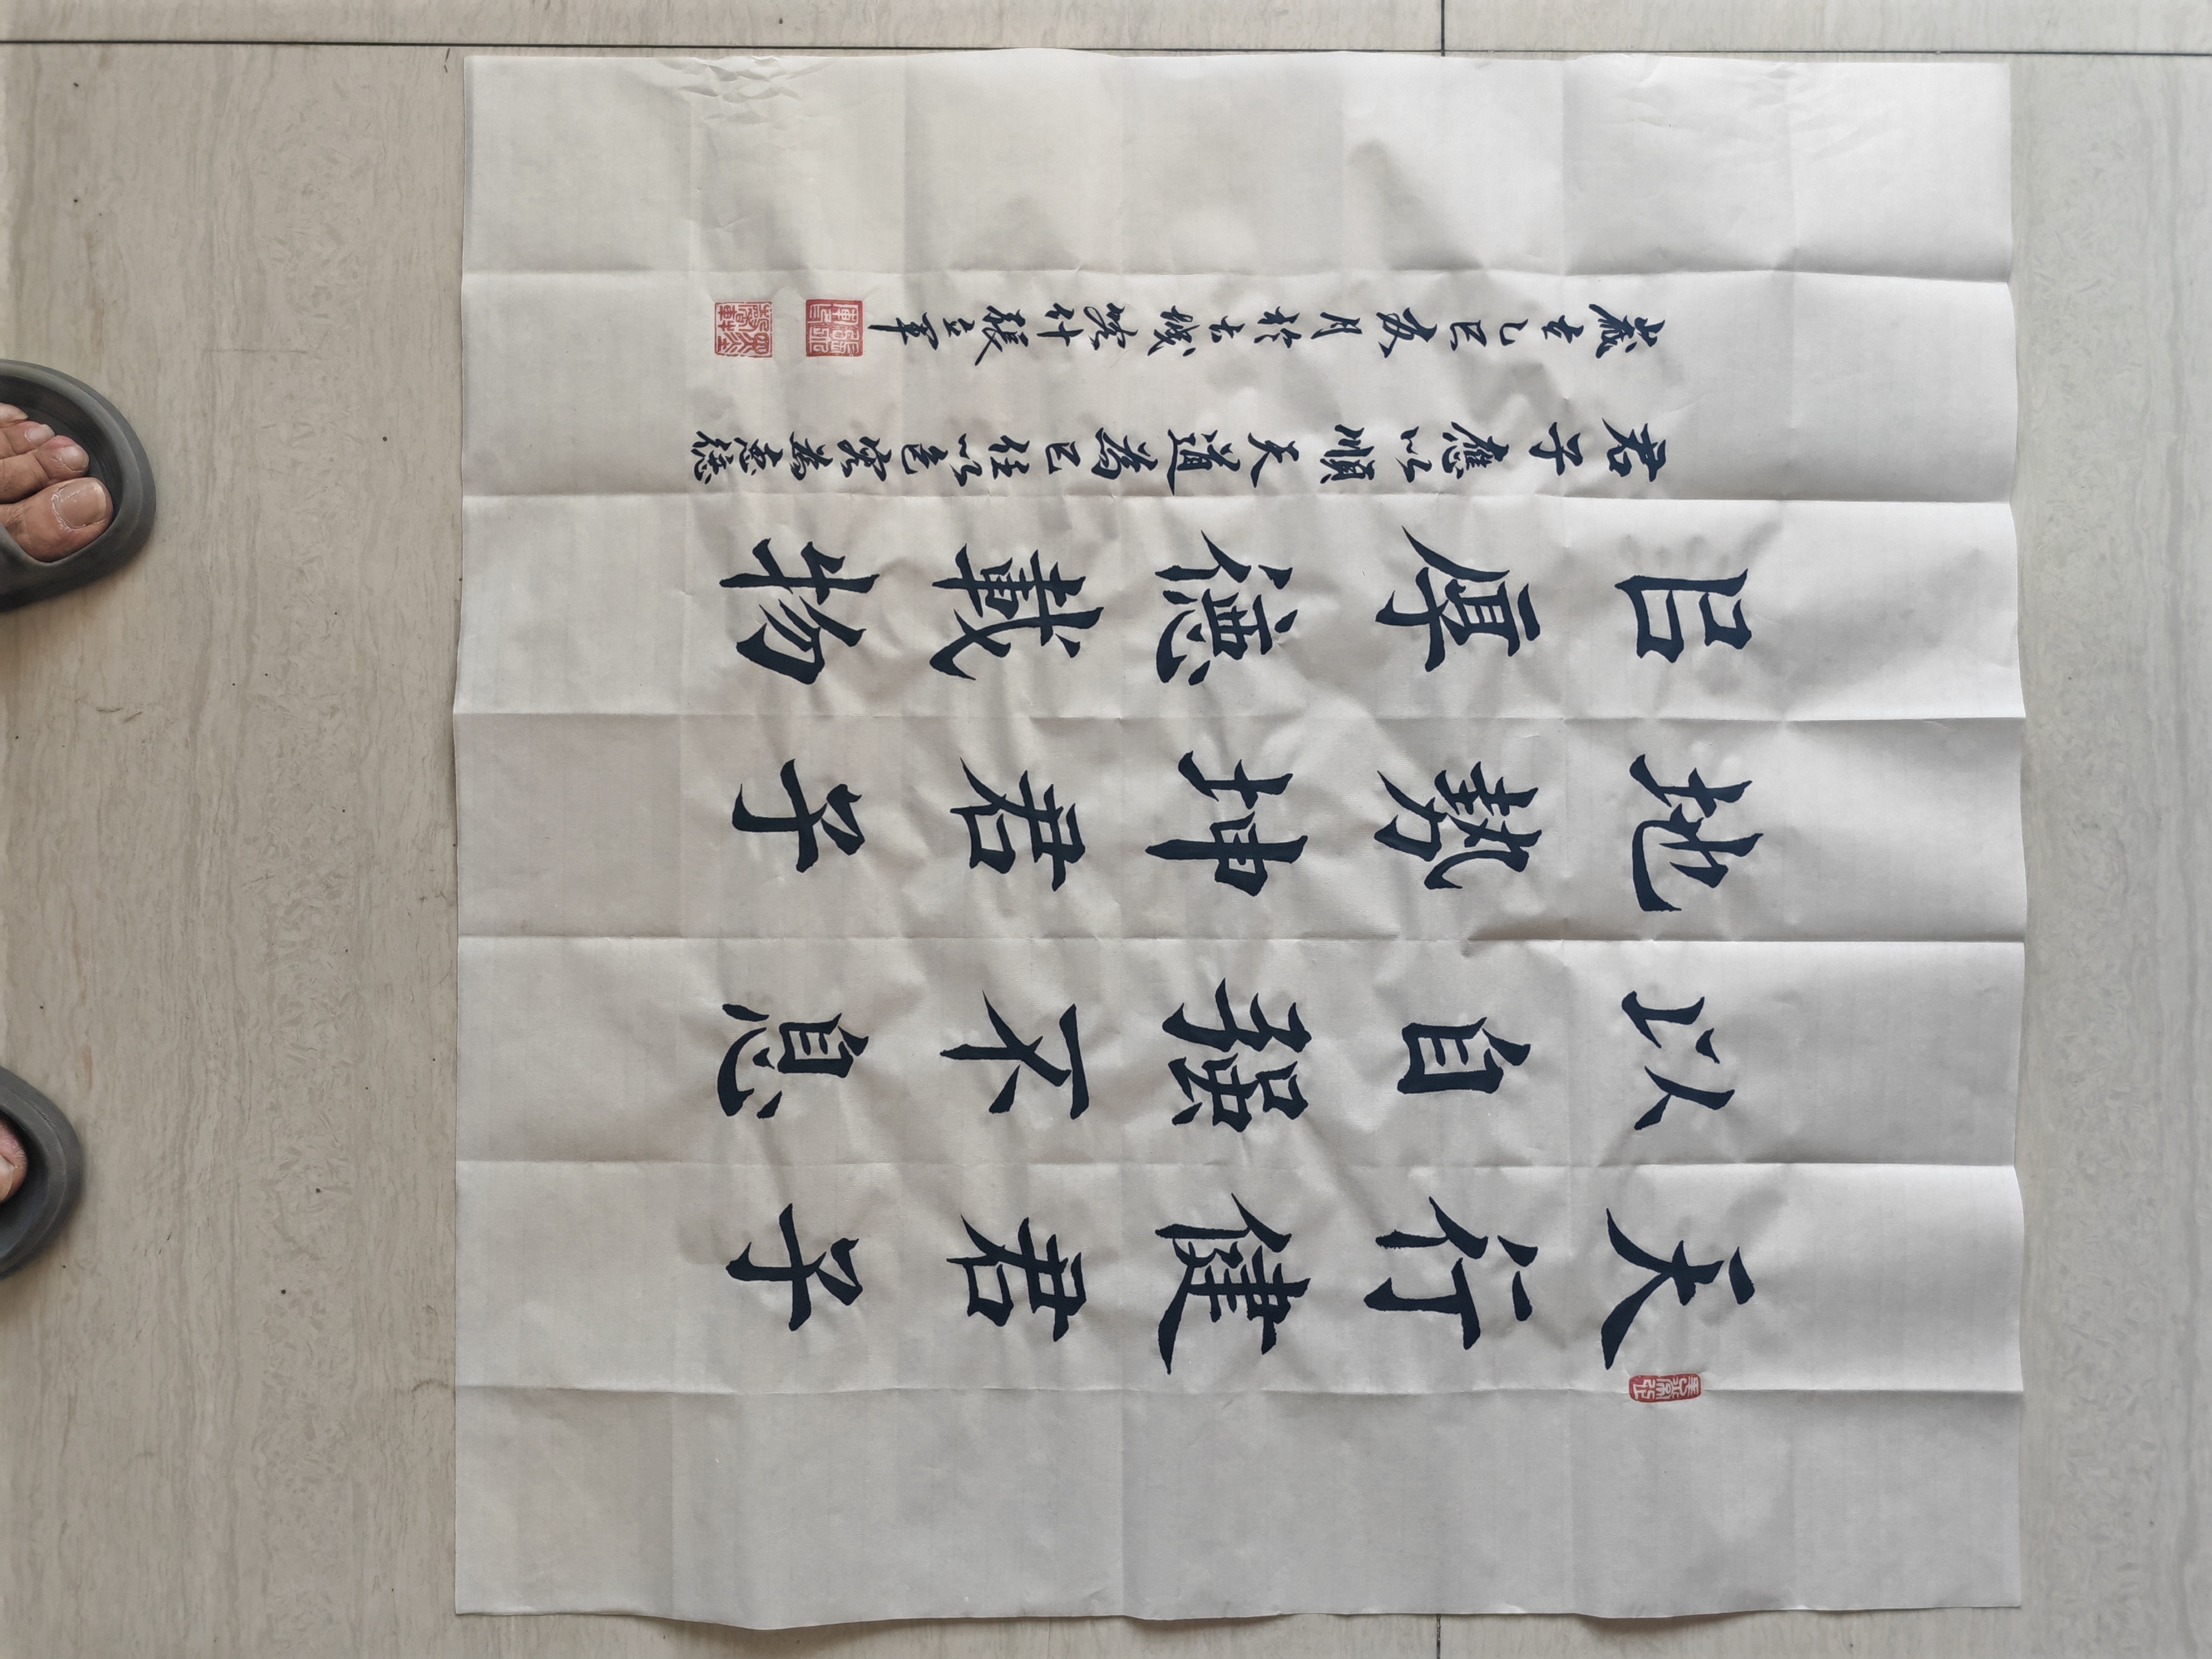 天行健君子
以自强不息
地勢坤君子
㠯厚德載物
君子應以順天道為己任以包容為美德
歲在乙巳夏月於古城張立軍